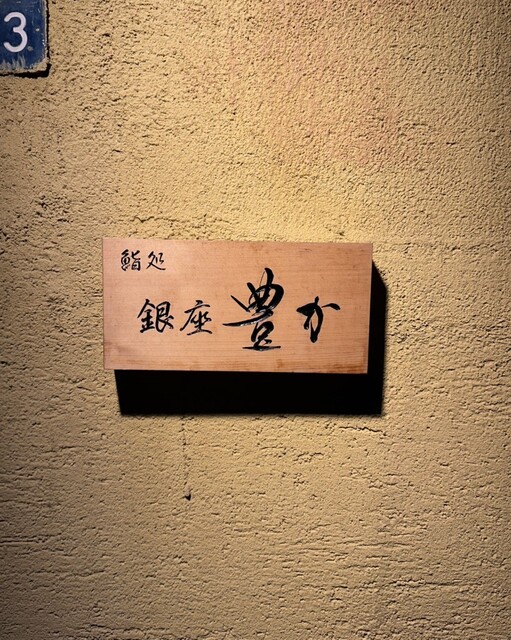 3
鮨処
銀座 豊か